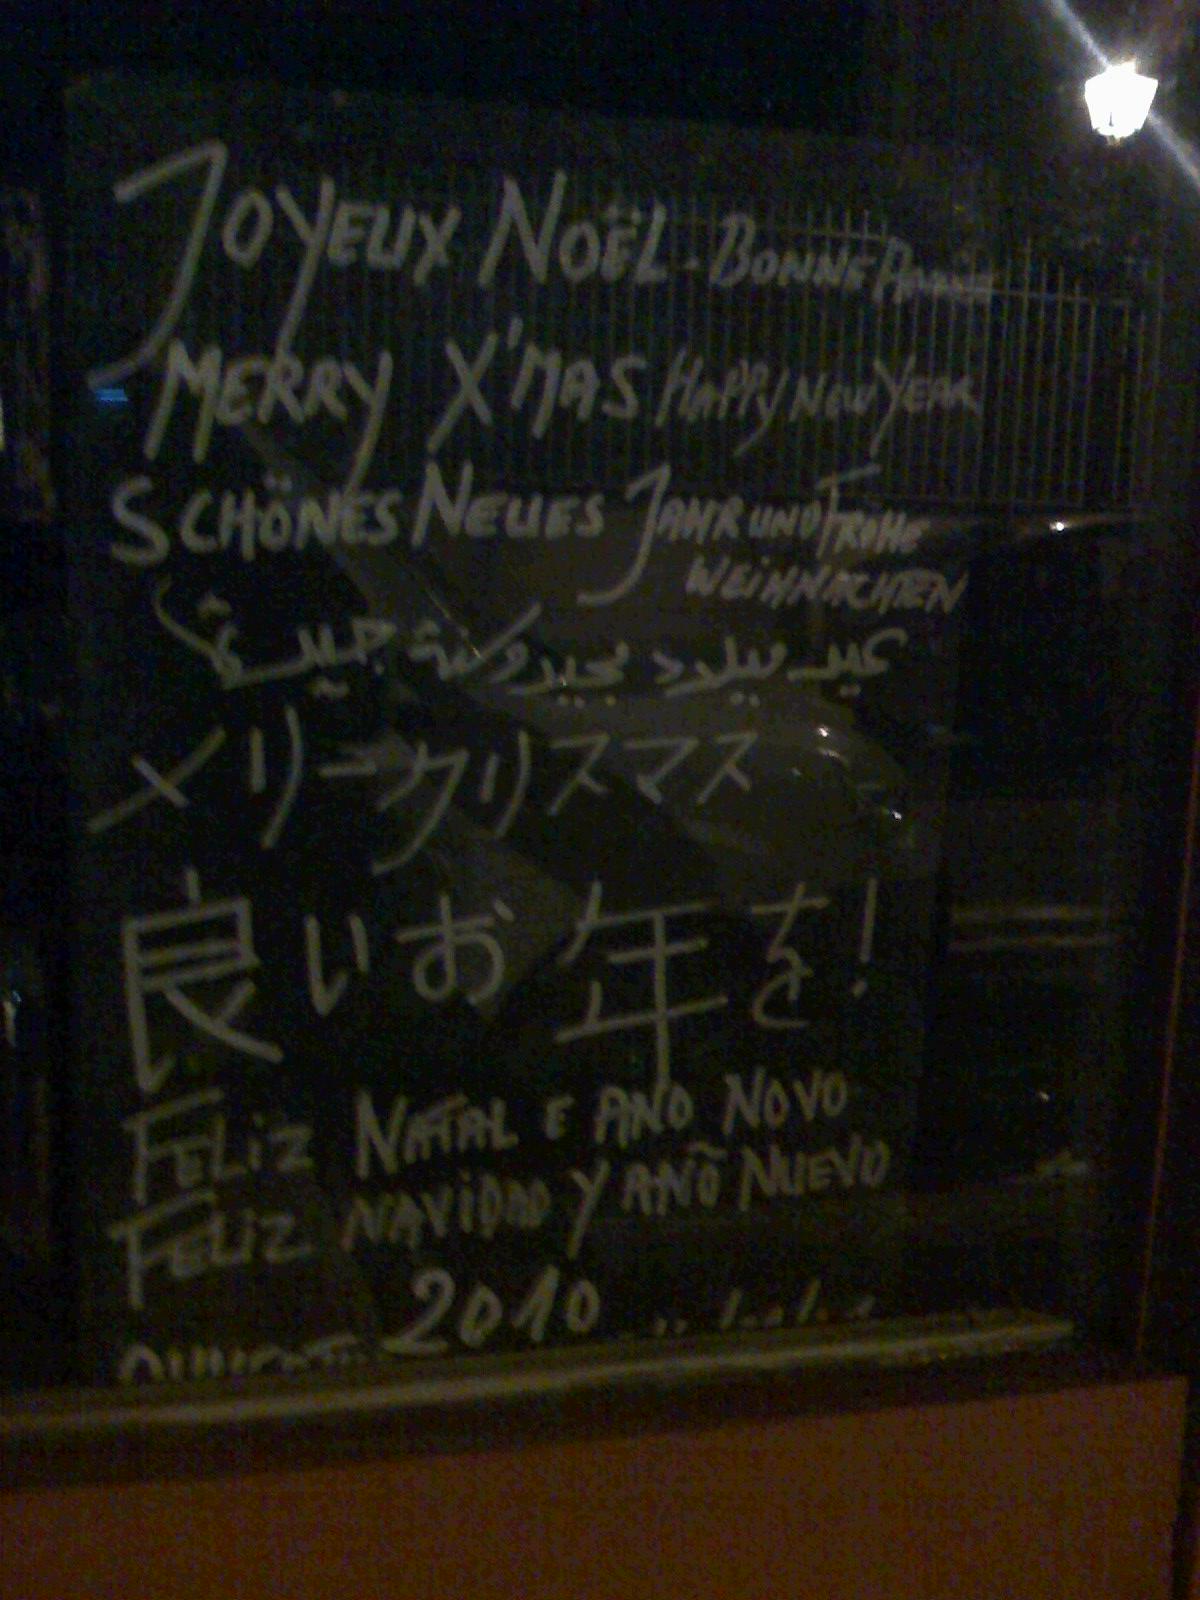 JOYEUX NOËL - BONNE ANNÉE
MERRY X'MAS HAPPY NEW YEAR
SCHÖNES NEUES JAHR UND FROHE
WEIHNACHTEN
عيد ميلاد مجيد وسنة
メリークリスマス
良いお年を!
FELIZ NATAL E ANO NOVO
FELIZ NAVIDAD Y AÑO NUEVO
2010